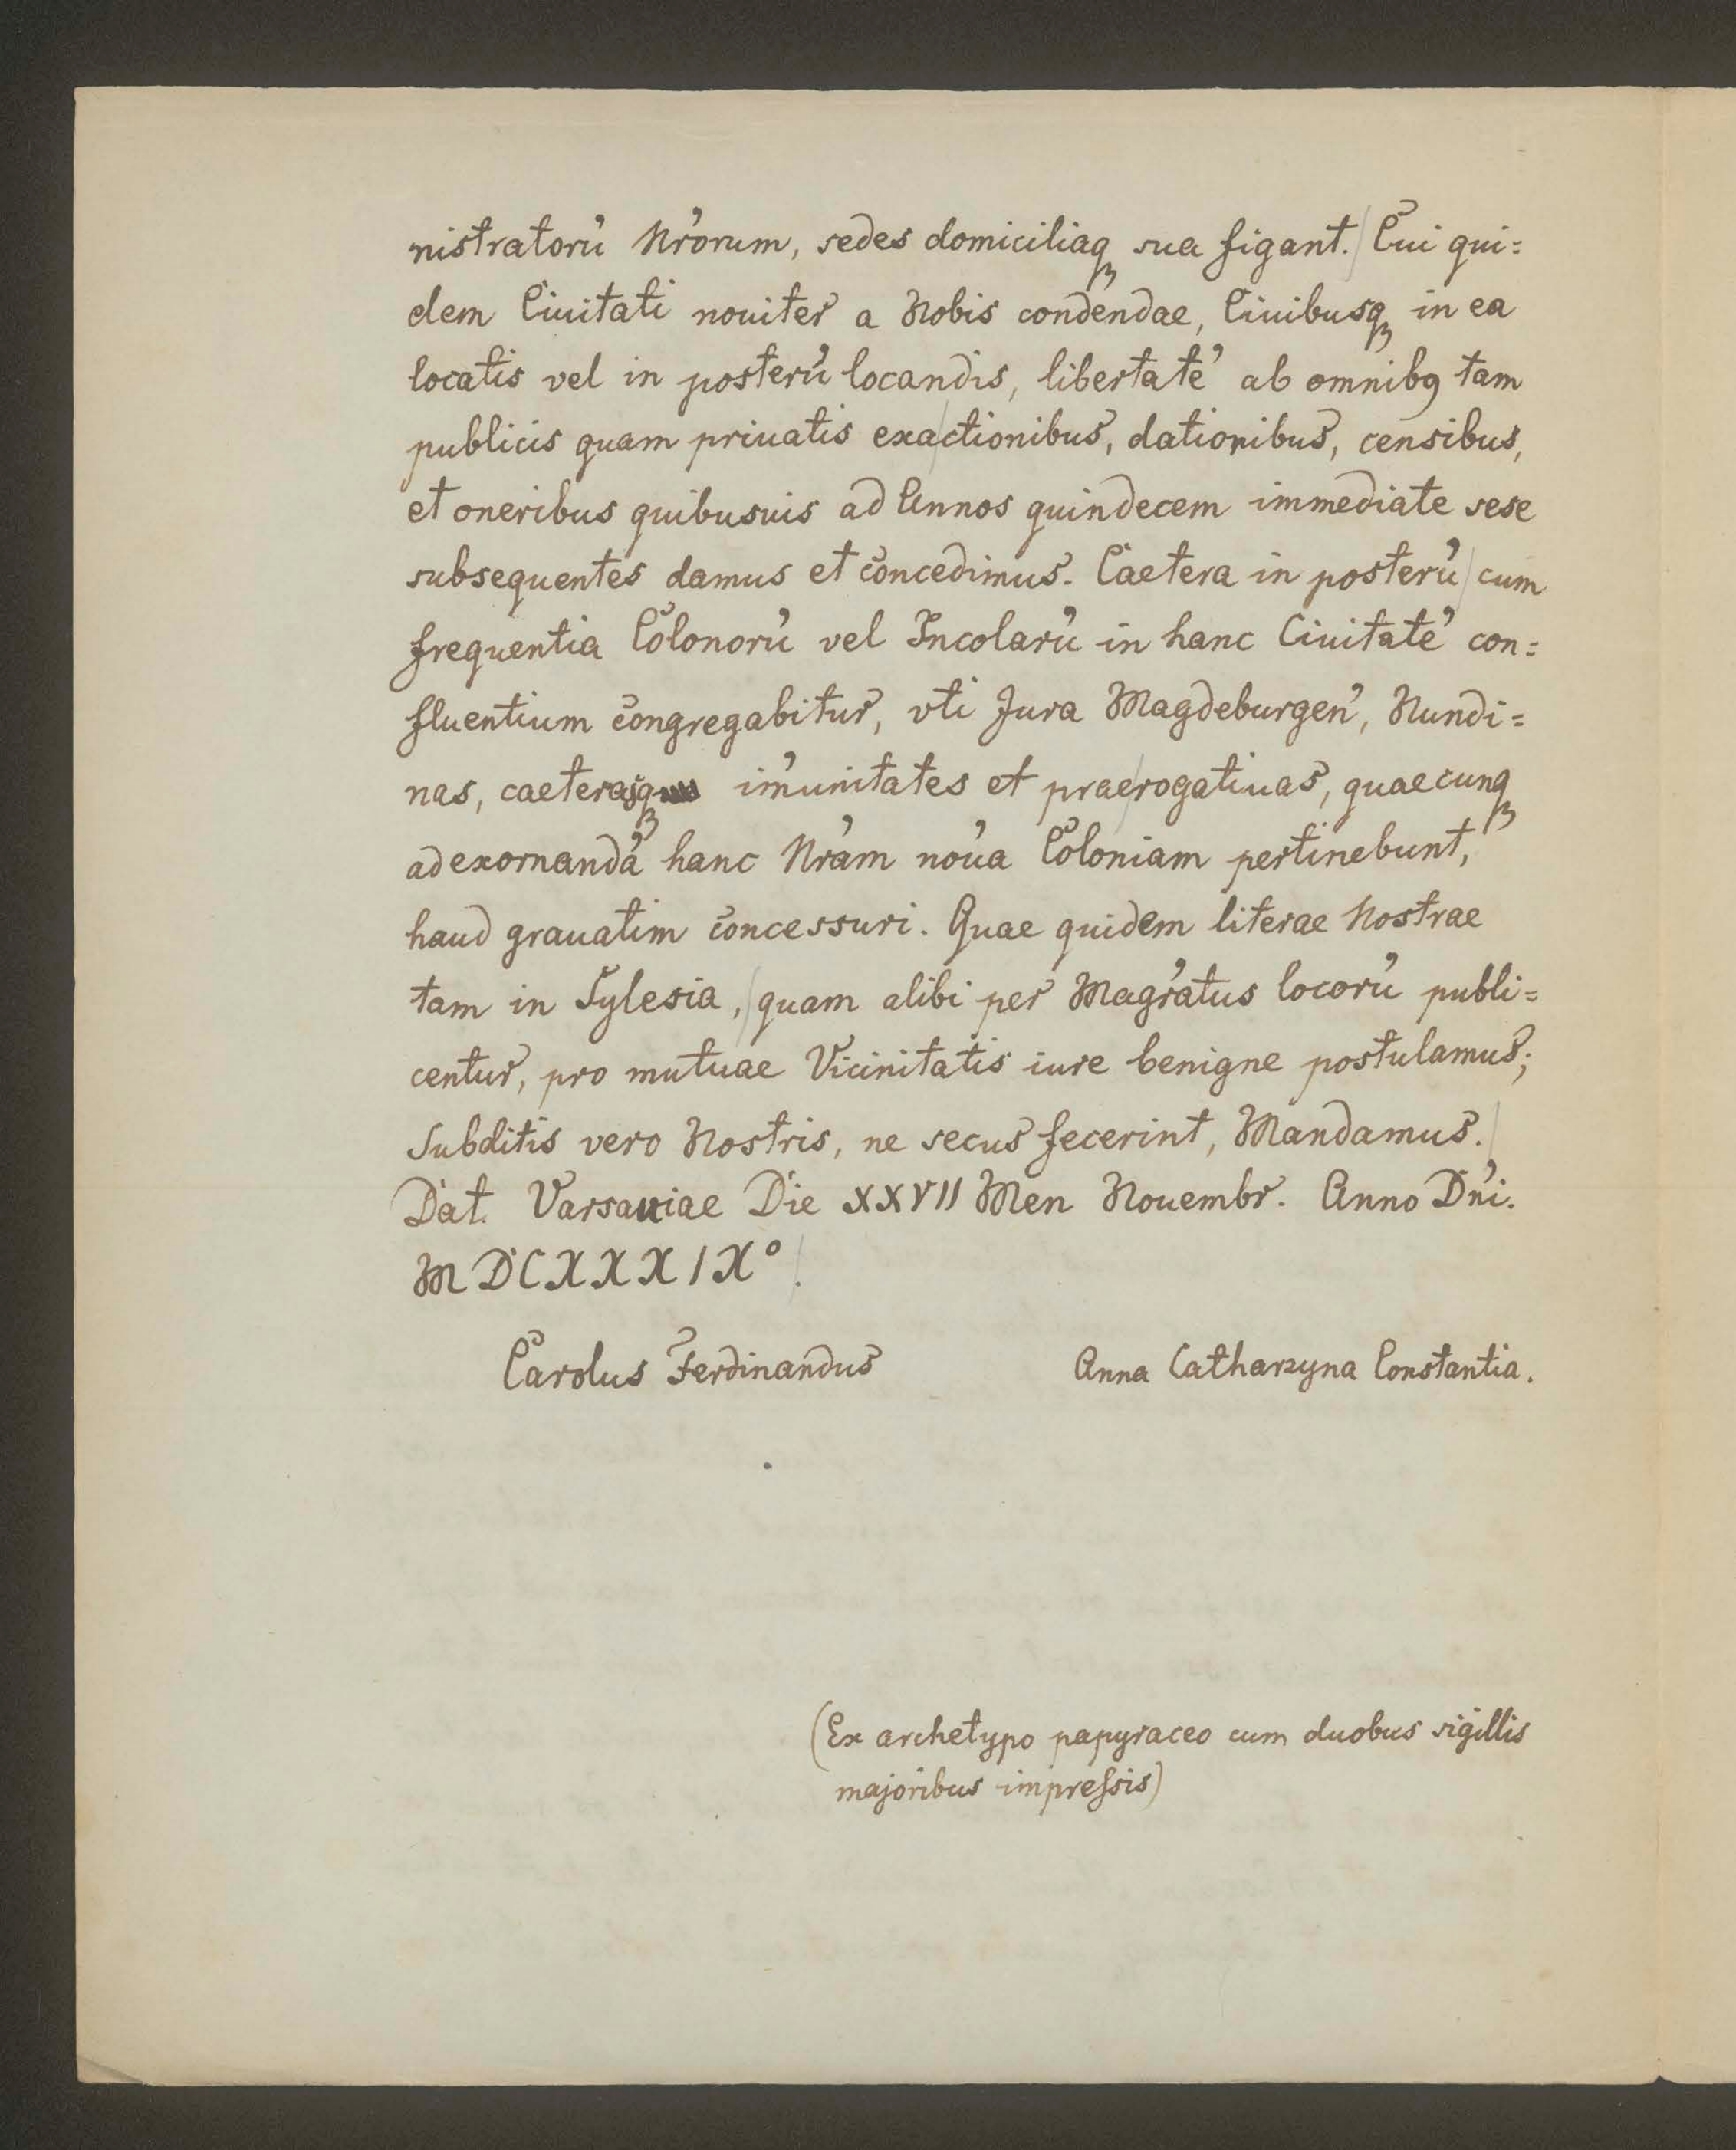 nistratorú Nrórum, sedes domiciliaqꝫ sua figant. Cui qui=
dem Ciuitati nouiter a Nobis condendae, Ciuibusqꝫ in ea
locatis vel in posterú locandis, libertaté ab omnibꝯ tam
publicis quam priuatis exactionibus, dationibus, censibus,
et oneribus quibusuis ad Annos quindecem immediate sese
subsequentes damus et concedimus. Caetera in posterú cum
frequentia Colonorú vel Incolarú in hanc Ciuitaté con=
fluentium congregabitur, vti Jura Magdeburgeń, Nundi=
nas, caeterasqꝫ im̓unitates et praerogatiuas, quaecunqꝫ
ad exornandá hanc Nrám nouá Coloniam pertinebunt,
haud grauatim concessuri. Quae quidem literae Nostrae
tam in Sylesia, quam alibi per Magrátus locorú publi=
centur, pro mutuae Vicinitatis iure benigne postulamus;
Subditis vero Nostris, ne secus fecerint, Mandamus.
Dat. Varsauiae Die XXVII Men Nouembr. Anno Dńi.
MDCXXXIX°.
Carolus Ferdinandus Anna Catharzyna Constantia.
(Ex archetypo papyraceo cum duobus sigillis
majoribus impreſsis)